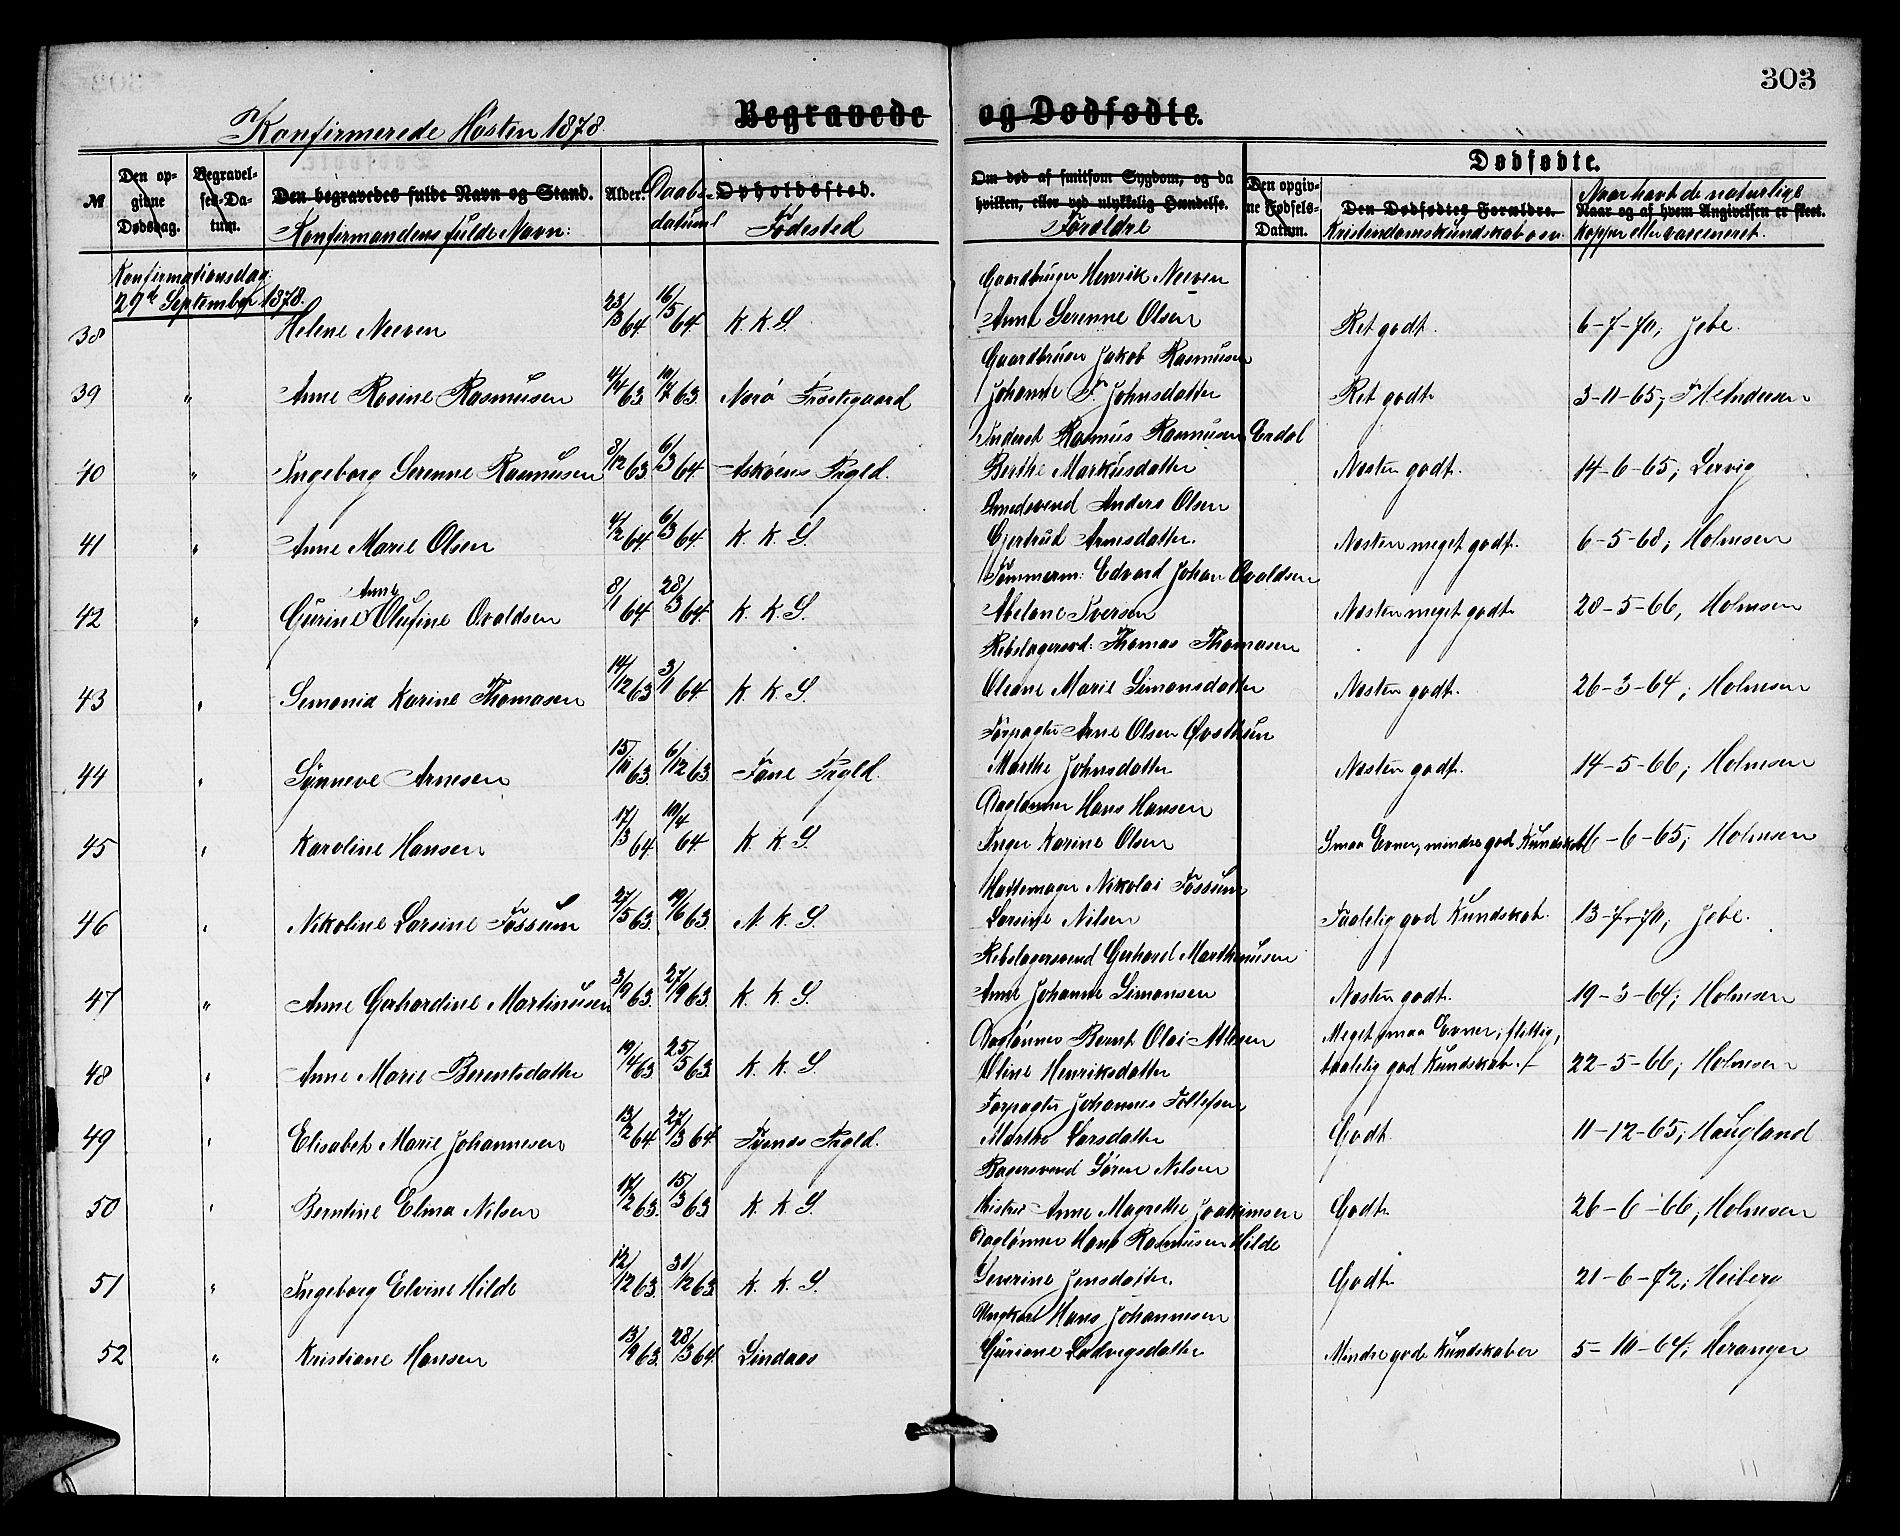 303
Konfirmerede Høsten 1878.
Begravede og Dødfødte.
Dødfødte.
№
Den opgivne Dødsdag.
Begravelses-Datum.
Den begravedes fulde Navn og Stand.
Konfirmandens fulde Navn:
Alder.
Daabsdatum
Opholdssted.
Fødested
Om død af smitsom Sygdom, og da hvilken, eller ved ulykkelig Hændelse.
Forældre
Den opgivne Fødsels-Datum.
Den Dødfødtes Forældre.
Kristendomskundskab osv.
Naar havt de naturlige
Naar og af hvem Angivelsen er skeet.
Kopper eller vaccineret.
Konfirmationsdag:
29de September 1878.
Gaardbruger Henrik Neeven
38 Helene Neeven 23/3 64 16/5 64 K. K. S. Anne Serenne Olsen Ret godt. 6-7-70; Jebe.
Gaardbruger Jakob Rasmusen
39 " Anne Rosine Rasmusen 4/4 63 10/7 63. Norø Præstegaard Johanne F. Johnsdatter Ret godt 3-11-65; Andersen
Inderst Rasmus Rasmusen Erdal
40 " Ingeborg Serenne Rasmusen 3/12 63 6/3 64 Askøens Prgld. Berthe Markusdatter Næsten godt. 14-6-65; Lervig
Smedsvend Anders Olsen
41 " Anne Marie Olsen 4/2 64 6/3 64. K. K. S. Gjertrud Arnesdatter. Næsten meget godt. 6-5-68; Holmsen
Tømmerm: Edvard Johan Ovaldsen
42 " Gurine Anne Olufine Ovaldsen 8/1 64 28/3 64. K. K. S. Abelone Iversen Næsten meget godt 28-5-66, Holmsen
Rebslagersvd: Thomas Thomasen
43 " Simonia Karine Thomasen 14/12 63 3/1 64. K. K. S. Oleane Marie Simonsdatter Næsten godt. 26-3-64; Holmsen
Forpagter Arne Olsen Øvsthun
44 " Synneve Arnesen 15/10 63. 6/12 63 Fane Prgld. Marthe Johnsdatter Næsten godt. 14-5-66; Holmsen
Daglønner Hans Hansen
45 " Karoline Hansen 17/3 64. 10/4 64. K. K. S. Inger Karine Olsen Smaa Evner, mindre god Kundskab 16-6-65; Holmsen
Hattemager Nikolai Fossum
46 " Nikoline Larsine Fossum 27/5 63. 19/6 63. N. K. S. Larsine Nilsen Taalelig god Kundskab. 13-7-70; Jebe.
Rebslagersvend Gerhard Marthinusen
47 " Anne Gerhardine Martinusen 3/9 63. 27/9 63. K. K. S. Anne Johanne Simonsen Næsten godt. 19-3-64; Holmsen
Daglønner Bernt Olai Meget smaa Evner; flittig,
48 " Anne Marie Berentsdatter 19/4 63. 25/5 63. K. K. S. Oline Henriksdatter taalelig god Kundskab. 22-5-66; Holmsen
Forpagter Johannes Tollefsen
49 " Elisabet Marie Johannesen 13/2 64 27/3 64. Tysnæs Prgld. Marthe Larsdatter Godt. 11-12-65; Haugland
Bagersvend Søren Nilsen
50 " Berntine Elina Nilsen 14/2 63. 15/3 63. K. K. S. Hustru Anne Magrethe Joakimsen Godt 26-6-66; Holmsen
Daglønner Hans Rasmusen Hilde
51 " Ingeborg Elvine Hilde 12/12 63. 31/12 63. K. K. S. Severine Jensdatter. Godt 21-6-72; Heiberg
Ungkarl Hans Johannesen
52 " Kristiane Hansen 13/9 63. 28/3 64. Lindaas Guriane Ludvigsdatter Mindre gode Kundskaber 5-10-64; Heranger